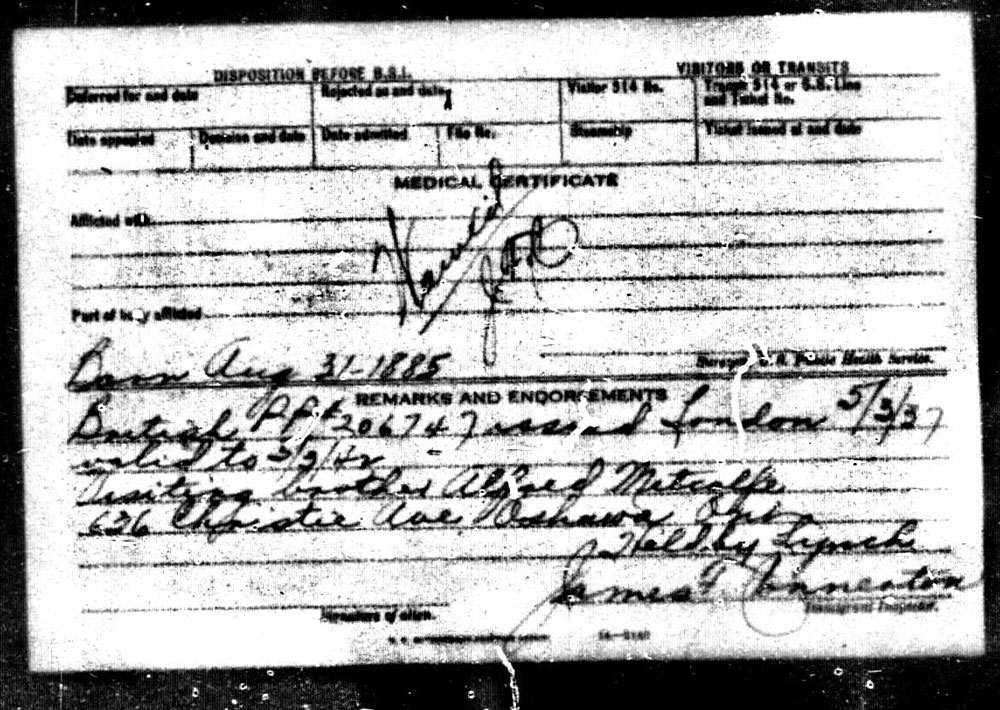 DISPOSITION BEFORE B.S.I.
VISITORS OR TRANSITS
Deferred for and date
Rejected as and date
Visitor 514 No.
Transit 514 or S.S. Line and Ticket No.
Date appealed
Decision and date
Date admitted
File No.
Steamship
Ticket issued at and date
MEDICAL CERTIFICATE
Afflicted with
Part of body afflicted
Surgeon U.S. Public Health Service.
Born Aug 31-1885
REMARKS AND ENDORSEMENTS
British PP# 206747 issued London 5/3/37
valid to 5/3/42
Visiting brother Alfred Metcalfe
636 Christie Ave Oshawa Ont
Held by Lynch
James
Immigrant Inspector.
Signature of alien.